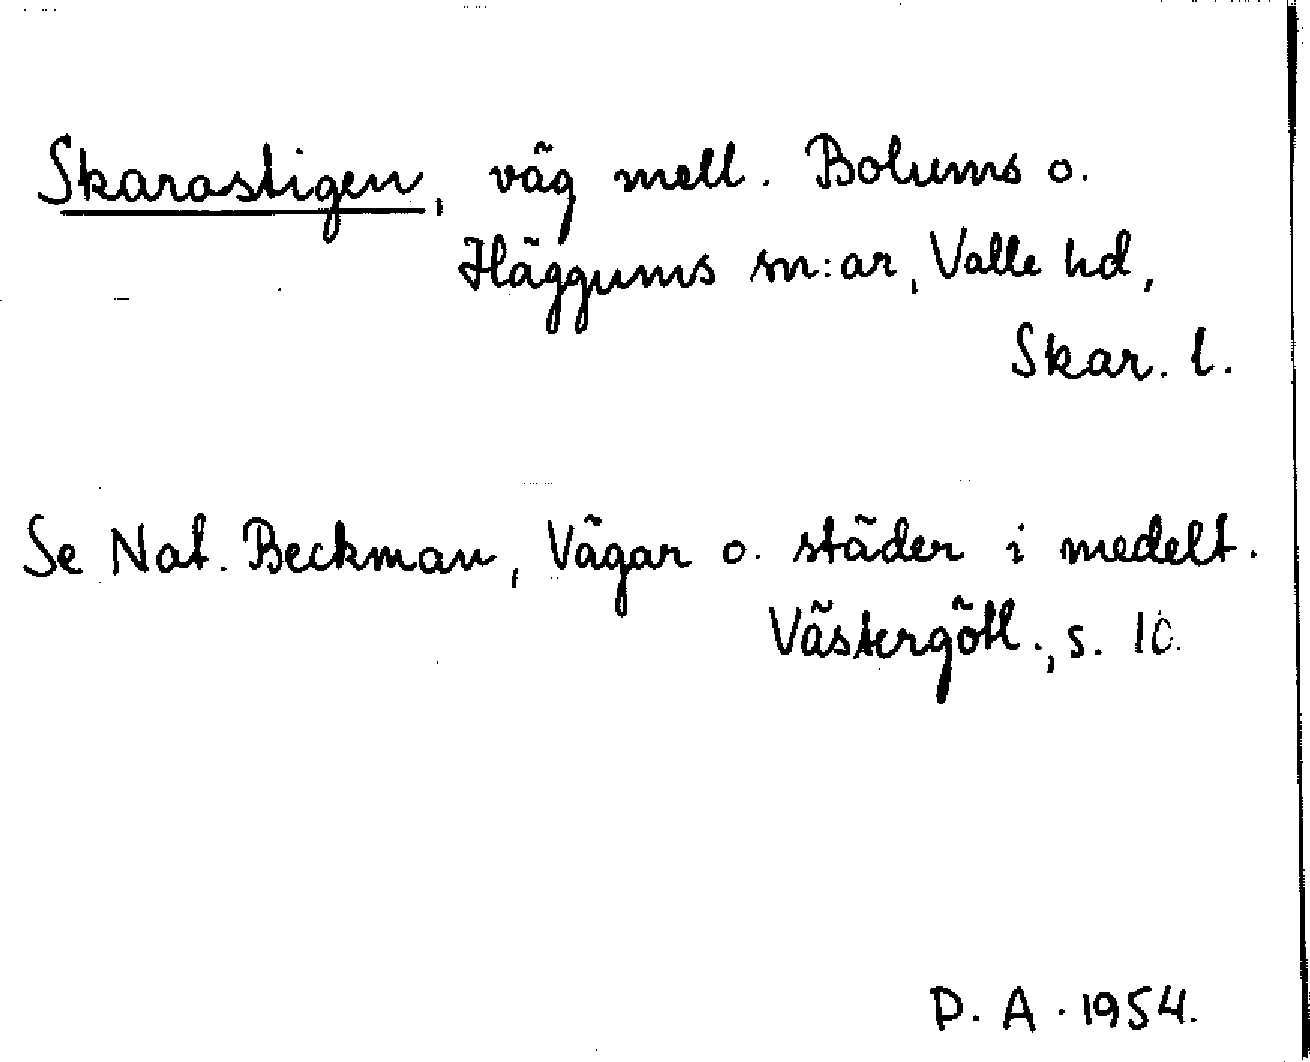 Skarastigen, väg mell. Bolums o.
Häggums sn:ar, Valle hd,
Skar. l.
Se Nat. Beckman, Vägar o. städer i medelt.
Västergötl., s. 10.
P. A. 1954.